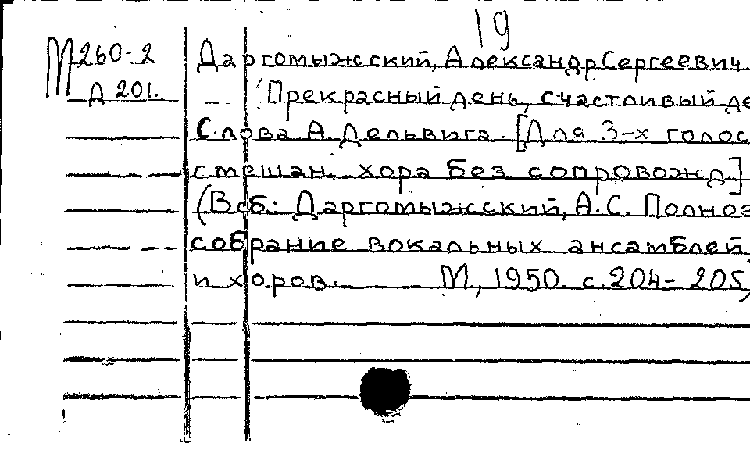 19
М260-2 Даргомыжский, Александр Сергеевич
Д 201. Прекрасный день, счастливый де
Слова А. Дельвига. [Для 3-х голос
смешан. хора без сопровожд.]
(В сб.: Даргомыжский, А.С. Полное
собрание вокальных ансамблей
и хоров. М., 1950. с. 204-205,